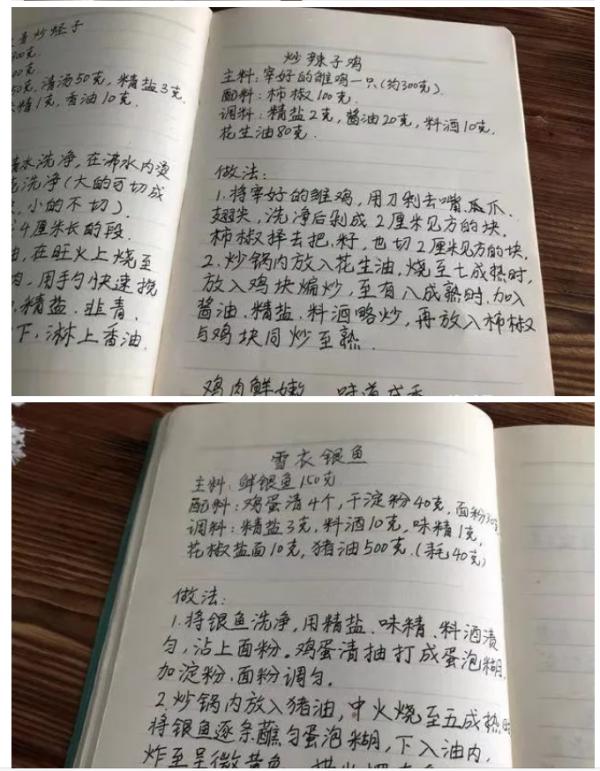 炒蛏子
300克
00克
50克,清汤50克,精盐3克
味精1克,香油10克.
清水洗净,在沸水内烫
洗净(大的可切成
小的不切).
4厘米长的段.
油,在旺火上烧至
肉,用手勺快速搅
精盐.韭青.
下,淋上香油.
炒辣子鸡
主料:宰好的雏鸡一只(约300克).
配料:柿椒100克.
调料:精盐2克,酱油20克,料酒10克.
花生油80克.
做法:
1.将宰好的雏鸡,用刀剁去嘴.爪.
翅尖,洗净后剁成2厘米见方的块.
柿椒择去把.籽.也切2厘米见方的块.
2.炒锅内放入花生油,烧至七成热时,
放入鸡块煸炒,至有八成熟时.加入
酱油.精盐.料酒略炒,再放入柿椒
与鸡块同炒至熟.
鸡肉鲜嫩 味道
雪衣银鱼
主料:鲜银鱼150克
配料:鸡蛋清4个,干淀粉40克,面粉30
调料:精盐3克,料酒10克,味精1克,
花椒盐面10克,猪油500克.(耗40克)
做法:
1.将银鱼洗净,用精盐.味精.料酒渍
匀,沾上面粉.鸡蛋清抽打成蛋泡糊,
加淀粉.面粉调匀.
2.炒锅内放入猪油,中火烧至五成热时
将银鱼逐条蘸匀蛋泡糊,下入油内,
炸至呈微黄色